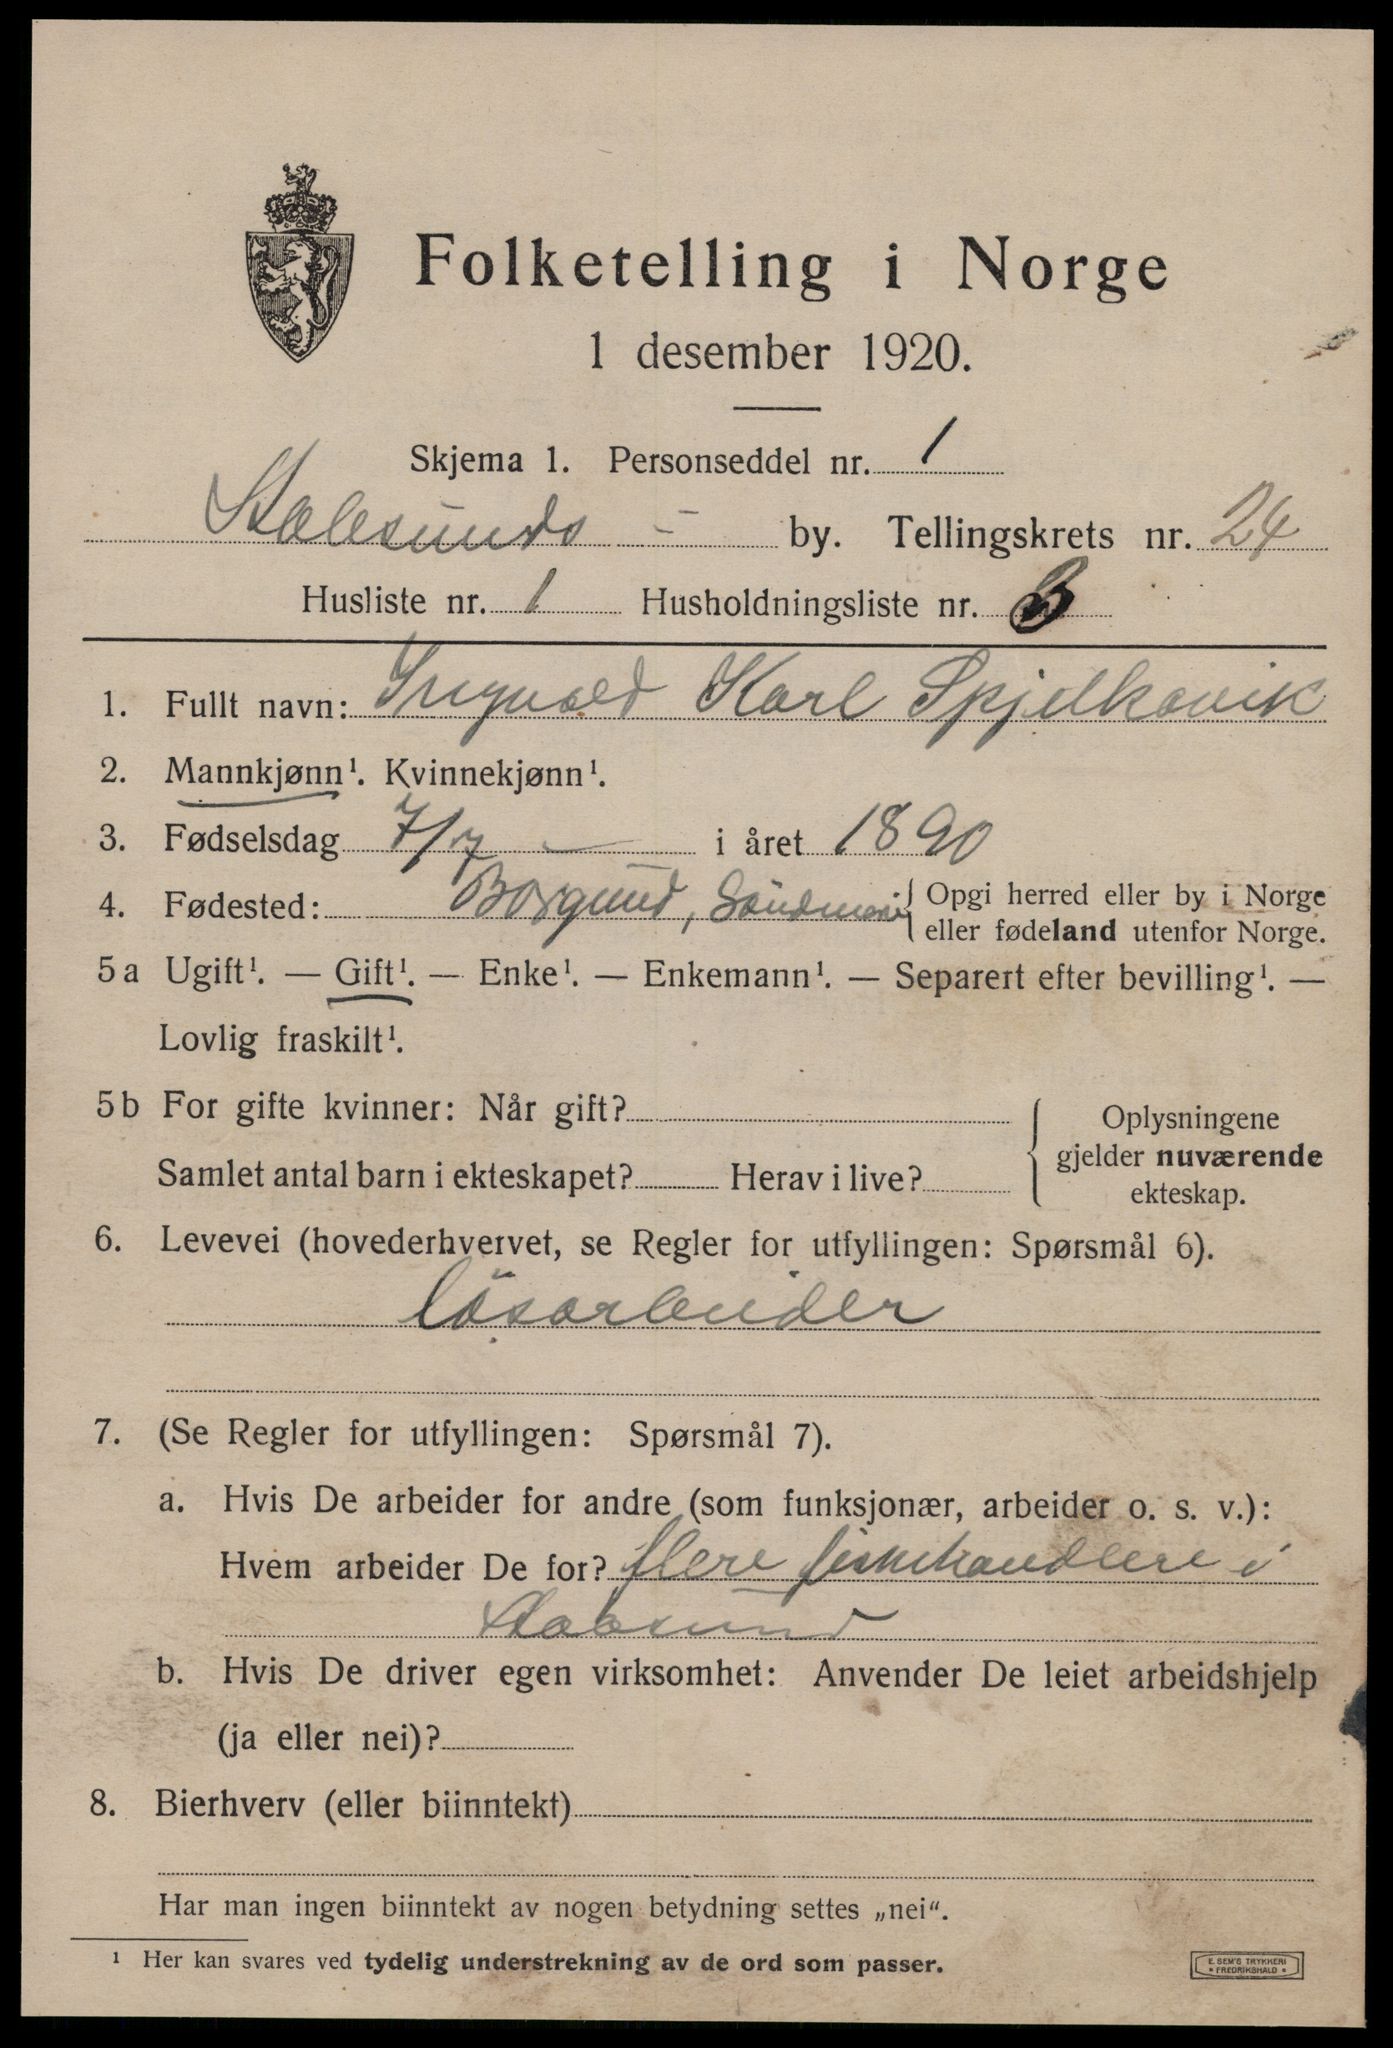 Folketelling i Norge
1 desember 1920.
Skjema 1. Personseddel nr. 1
Aalesunds by. Tellingskrets nr. 24
Husliste nr. 1 Husholdningsliste nr. 3
1. Fullt navn: Ingvald Karl Spjelkavik
2. Mannkjønn¹. Kvinnekjønn¹.
3. Fødselsdag 7/7 — i året 1890
4. Fødested: Borgund, Søndmøre { Opgi herred eller by i Norge
eller fødeland utenfor Norge.
5a Ugift¹. — Gift¹. — Enke¹. — Enkemann¹. — Separert efter bevilling¹. —
Lovlig fraskilt¹.
5b For gifte kvinner: Når gift?
Samlet antal barn i ekteskapet? Herav i live?
Oplysningene
gjelder nuværende
ekteskap.
6. Levevei (hovederhvervet, se Regler for utfyllingen: Spørsmål 6).
løsarbeider
7. (Se Regler for utfyllingen: Spørsmål 7).
a. Hvis De arbeider for andre (som funksjonær, arbeider o. s. v.):
Hvem arbeider De for? flere fiskehandlere i
Aalesund
b. Hvis De driver egen virksomhet: Anvender De leiet arbeidshjelp
(ja eller nei)?
8. Bierhverv (eller biinntekt)
Har man ingen biinntekt av nogen betydning settes „nei".
¹ Her kan svares ved tydelig understrekning av de ord som passer.
E. SEM'S TRYKKERI
* FREDRIKSHALD *